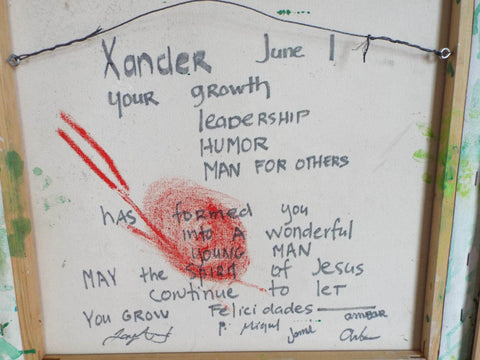 Xander June 1
your growth
leadership
HUMOR
MAN FOR OTHERS
has formed you
into A wonderful
YOUNG MAN
MAY the Spirit of Jesus
continue to let
YOU GROW Felicidades
P. Miguel Jamie